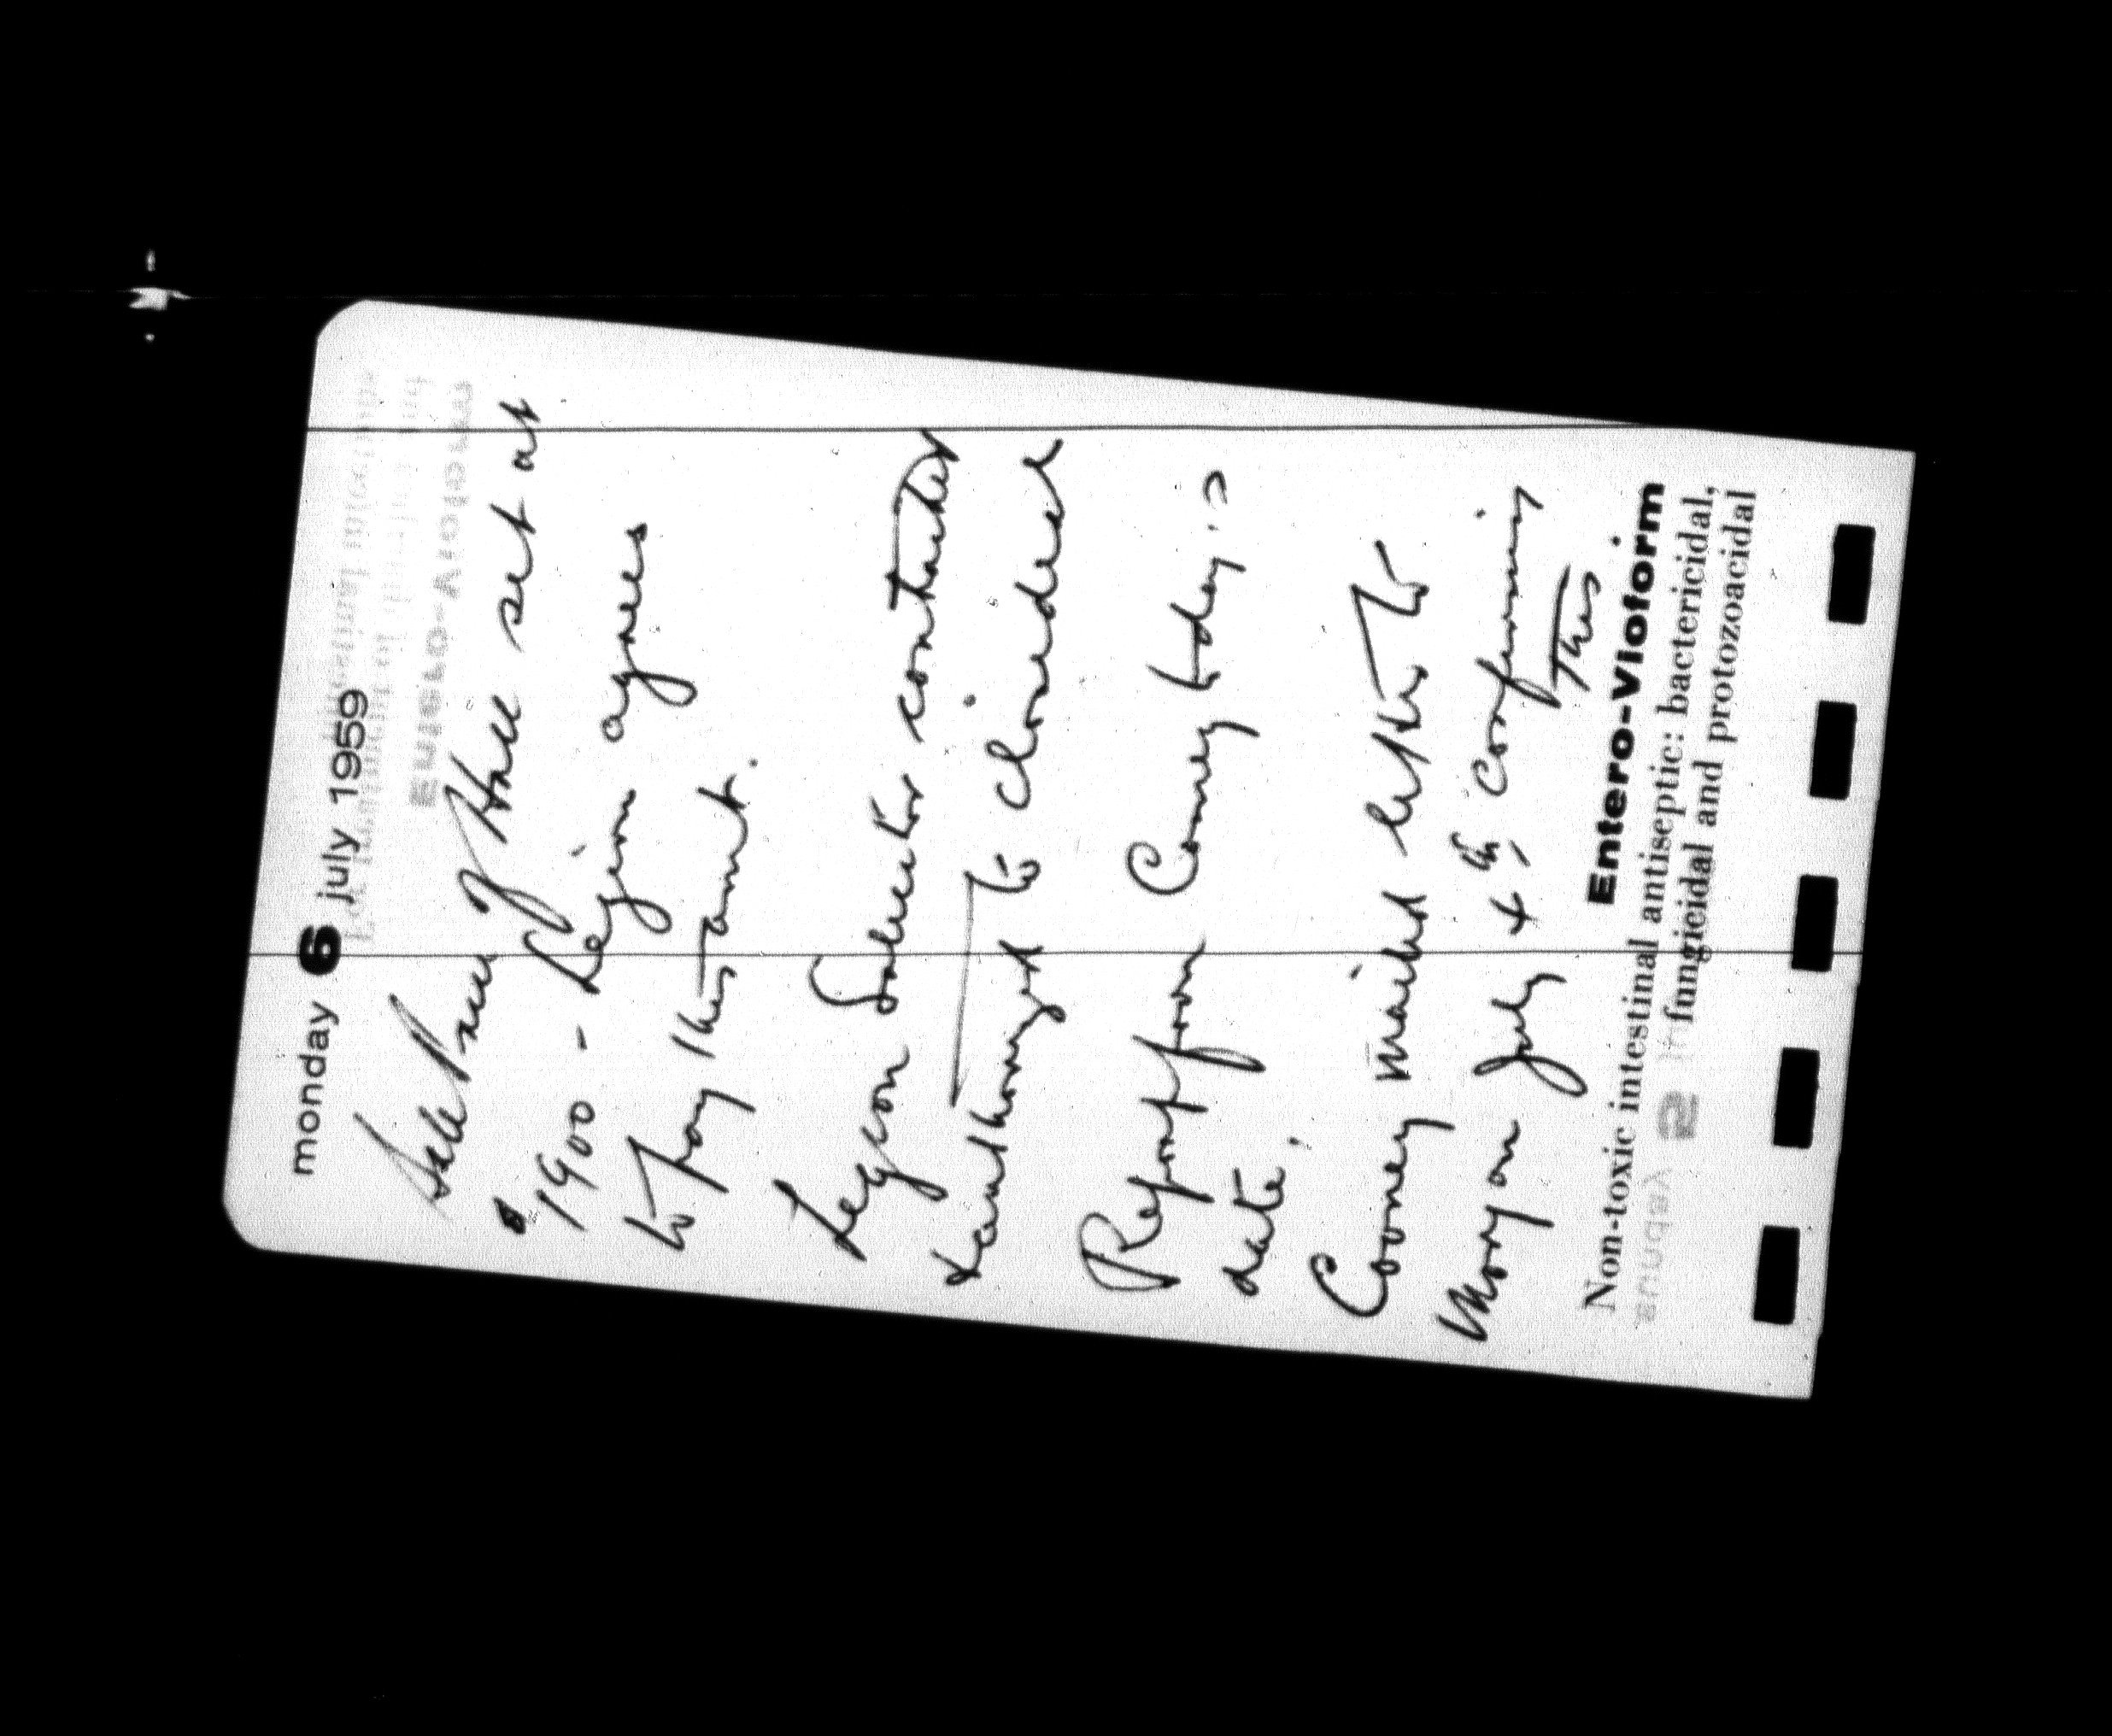 monday 6 july 1959
Sale Price of Hall set at
$1900 - Legion agrees
to pay this amt.
Legion Solicitor contacted
& authorized to close deal
Report from Cooney today is
date.
Cooney mailed letter to
Mory on July 4th, confirming
this
Entero-Vioform
Non-toxic intestinal antiseptic: bactericidal,
fungicidal and protozoacidal